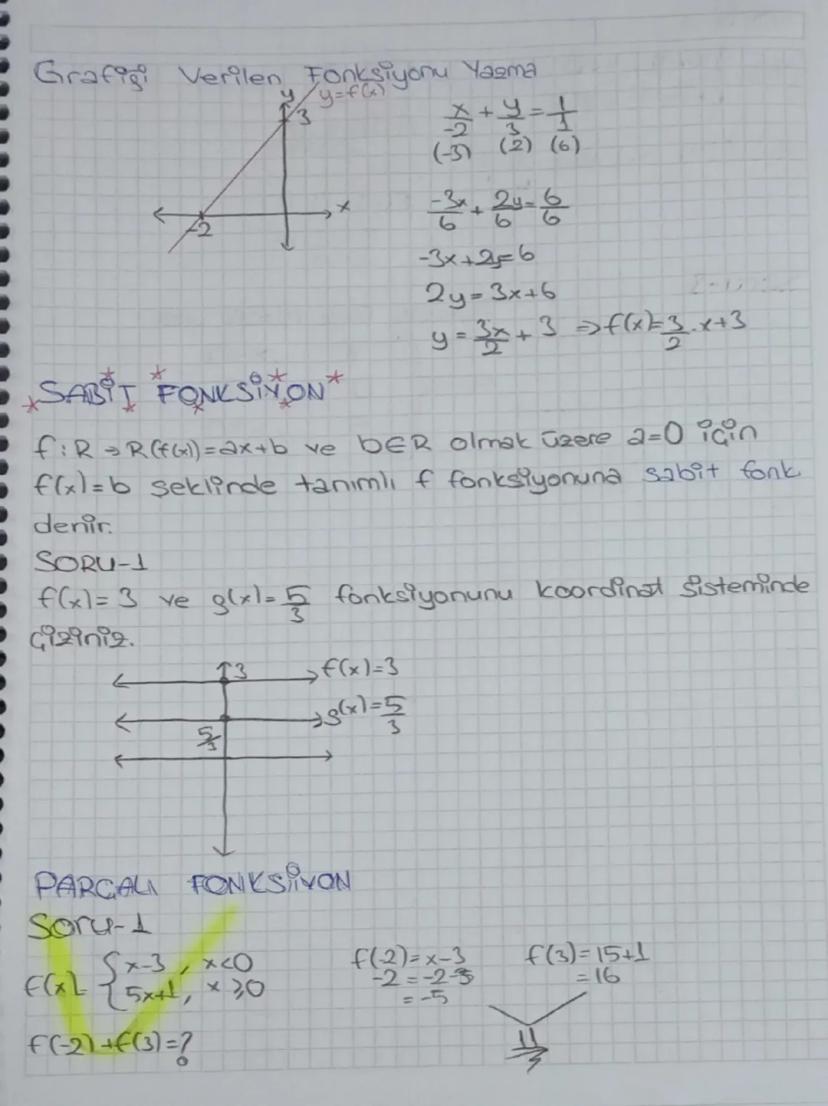 Grafiği Verilen Fonksiyonu Yazma
y y=f(x)
3
x
-2
x/-2 + y/3 = 1/1
(-3) (2) (6)
-3x/6 + 2y/6 = 6/6
-3x+2y=6
2y=3x+6
y=3x/2+3 ⇒ f(x)=3/2.x+3
SABİT FONKSİYON
f:R→R(f(x))=ax+b ve b∈R olmak üzere a=0 için
f(x)=b seklinde tanımlı f fonksiyonuna sabit fonk
denir.
SORU-1
f(x)=3 ve g(x)=5/3 fonksiyonunu koordinat sisteminde
çiziniz.
3 f(x)=3
g(x)=5/3
5/3
PARÇALI FONKSİYON
Soru-1
f(x)= { x-3, x<0
5x+1, x≥0
f(-2)+f(3)=?
f(-2)=x-3
-2=-2-3
=-5
f(3)=15+1
=16
11